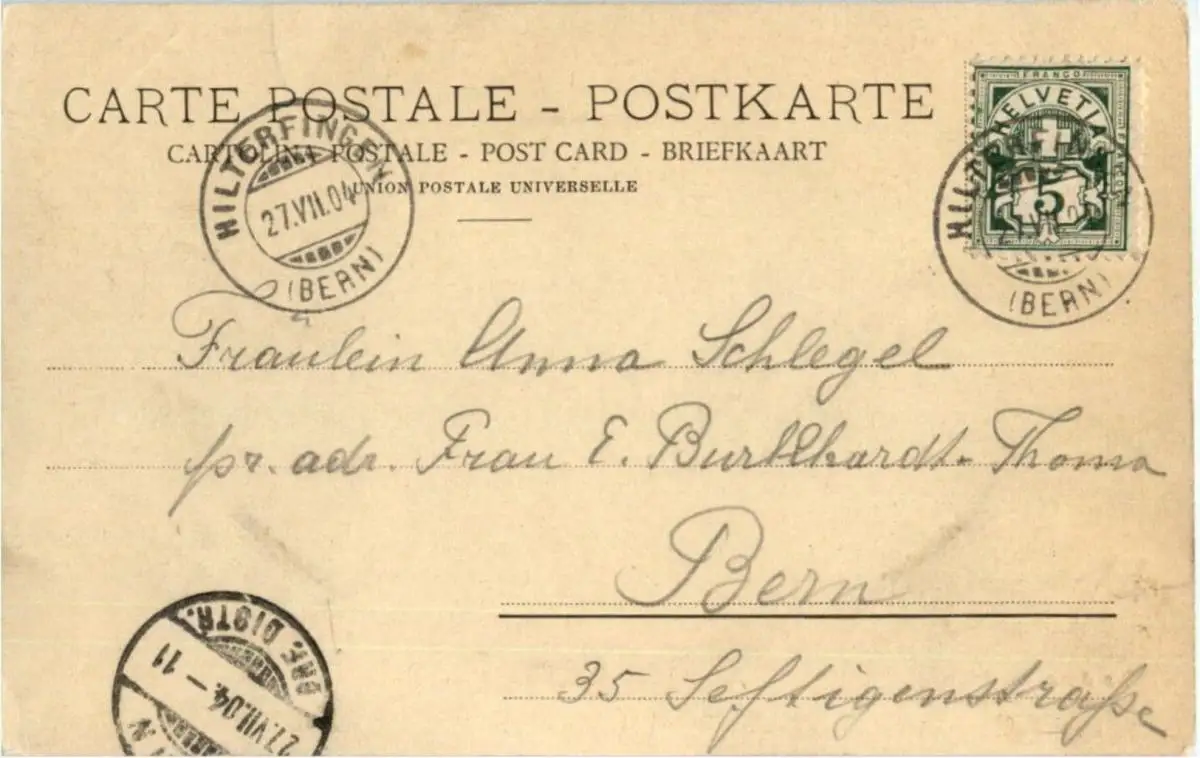 CARTE POSTALE - POSTKARTE
CARTOLINA POSTALE - POST CARD - BRIEFKAART
UNION POSTALE UNIVERSELLE
HILTERFINGEN
27.VII.04
(BERN)
FRANCO
HELVETIA
5
HILTERFIN
(BERN)
Fraulein Anna Schlegel
pr. adr. Frau E. Burkhardt-Thoma
Bern
35 Seftigenstraße
DISTR.
27.VII.04.-11